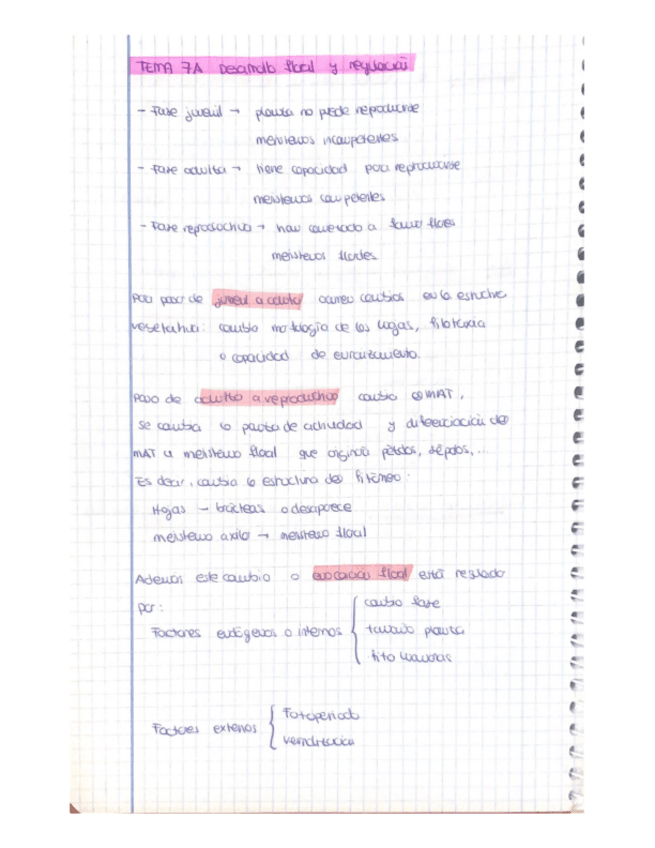 TEMA 7A Desarrollo floral y regulación
- Fase juvenil → planta no puede reproducirse
meristemos incompetentes
- Fase adulta → tiene capacidad para reproducirse
meristemos competentes
- Fase reproductiva → han comenzado a formar flores
meristemos florales
Para paso de juvenil a adulta ocurren cambios en la estructura
vegetativa: cambia morfología de las hojas, filotaxia
o capacidad de enraizamiento.
Paso de adulto a reproductivo cambia el MAT,
se cambia la pauta de actividad y diferenciación del
MAT a meristemo floral que origina pétalos, sépalos,...
Es decir, cambia la estructura del fitómero:
Hojas → brácteas o desaparece
meristemo axilar → meristemo floral
Además este cambio o evocación floral está regulado
por:
Factores endógenos o internos { cambio fase
tamaño planta
fitohormonas
Factores externos { Fotoperiodo
vernalización